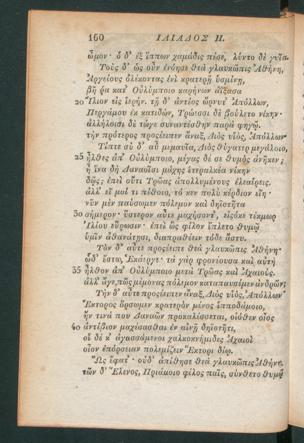 160 ΙΛΙΑΔΟΣ Η.
ὦμον· ὁ δ' ἐξ ἵππων χαμάδις πέσε, λύντο δὲ γυῖα.
Τοὺς δ' ὡς οὖν ἐνόησε θεὰ γλαυκῶπις Ἀθήνη,
Ἀργείους ὀλέκοντας ἐνὶ κρατερῇ ὑσμίνῃ,
βῆ ῥα κατ' Οὐλύμποιο καρήνων ἀΐξασα
20 Ἴλιον εἰς ἱερήν. τῇ δ' ἀντίος ὤρνυτ' Ἀπόλλων,
Περγάμου ἐκ κατιδὼν, Τρώεσσι δὲ βούλετο νίκην·
ἀλλήλοισι δὲ τώγε συναντέσθην παρὰ φηγῷ.
τὴν πρότερος προσέειπεν ἄναξ, Διὸς υἱὸς, Ἀπόλλων·
Τίπτε σὺ δ' αὖ μεμαυῖα, Διὸς θύγατερ μεγάλοιο,
25 ἦλθες ἀπ' Οὐλύμποιο, μέγας δέ σε θυμὸς ἀνῆκεν;
ἦ ἵνα δὴ Δαναοῖσι μάχης ἑτεραλκέα νίκην
δῷς; ἐπεὶ οὔτι Τρῶας ἀπολλυμένους ἐλεαίρεις.
ἀλλ' εἴ μοί τι πίθοιο, τό κεν πολὺ κέρδιον εἴη·
νῦν μὲν παύσωμεν πόλεμον καὶ δηϊοτῆτα
30 σήμερον· ὕστερον αὖτε μαχήσοντ', εἰσόκε τέκμωρ
Ἰλίου εὕρωσιν· ἐπεὶ ὣς φίλον ἔπλετο θυμῷ
ὑμῖν ἀθανάτῃσι, διαπραθέειν τόδε ἄστυ.
Τὸν δ' αὖτε προσέειπε θεὰ γλαυκῶπις Ἀθήνη·
ὧδ' ἔστω, Ἑκάεργε· τὰ γὰρ φρονέουσα καὶ αὐτὴ
35 ἦλθον ἀπ' Οὐλύμποιο μετὰ Τρῶας καὶ Ἀχαιούς.
ἀλλ' ἄγε, πῶς μέμονας πόλεμον καταπαυσέμεν ἀνδρῶν;
Τὴν δ' αὖτε προσέειπεν ἄναξ, Διὸς υἱὸς, Ἀπόλλων·
Ἕκτορος ὄρσωμεν κρατερὸν μένος ἱπποδάμοιο,
ἤν τινά που Δαναῶν προκαλέσσεται, οἰόθεν οἶος
40 ἀντίβιον μαχέσασθαι ἐν αἰνῇ δηϊοτῆτι,
οἱ δέ κ' ἀγασσάμενοι χαλκοκνήμιδες Ἀχαιοὶ
οἶον ἐπόρσειαν πολεμίζειν Ἕκτορι δίῳ.
Ὣς ἔφατ'· οὐδ' ἀπίθησε θεὰ γλαυκῶπις Ἀθήνη.
τῶν δ' Ἕλενος, Πριάμοιο φίλος παῖς, σύνθετο θυμῷ